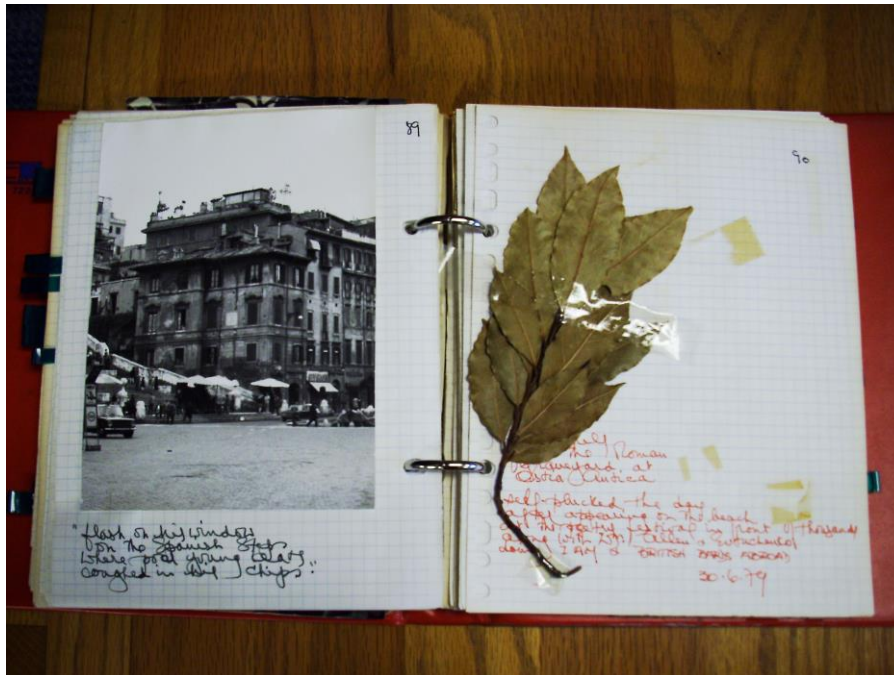 89
"flash on his windows
on the Spanish Steps
where poor young Keats
coughed in his
90
the Roman
graveyard, at
Ostia Antica
self-plucked the day
after appearing on the beach
at the poetry festival in front of thousands
along with
doing I AM & BRITISH BARDS ABROAD
30.6.79